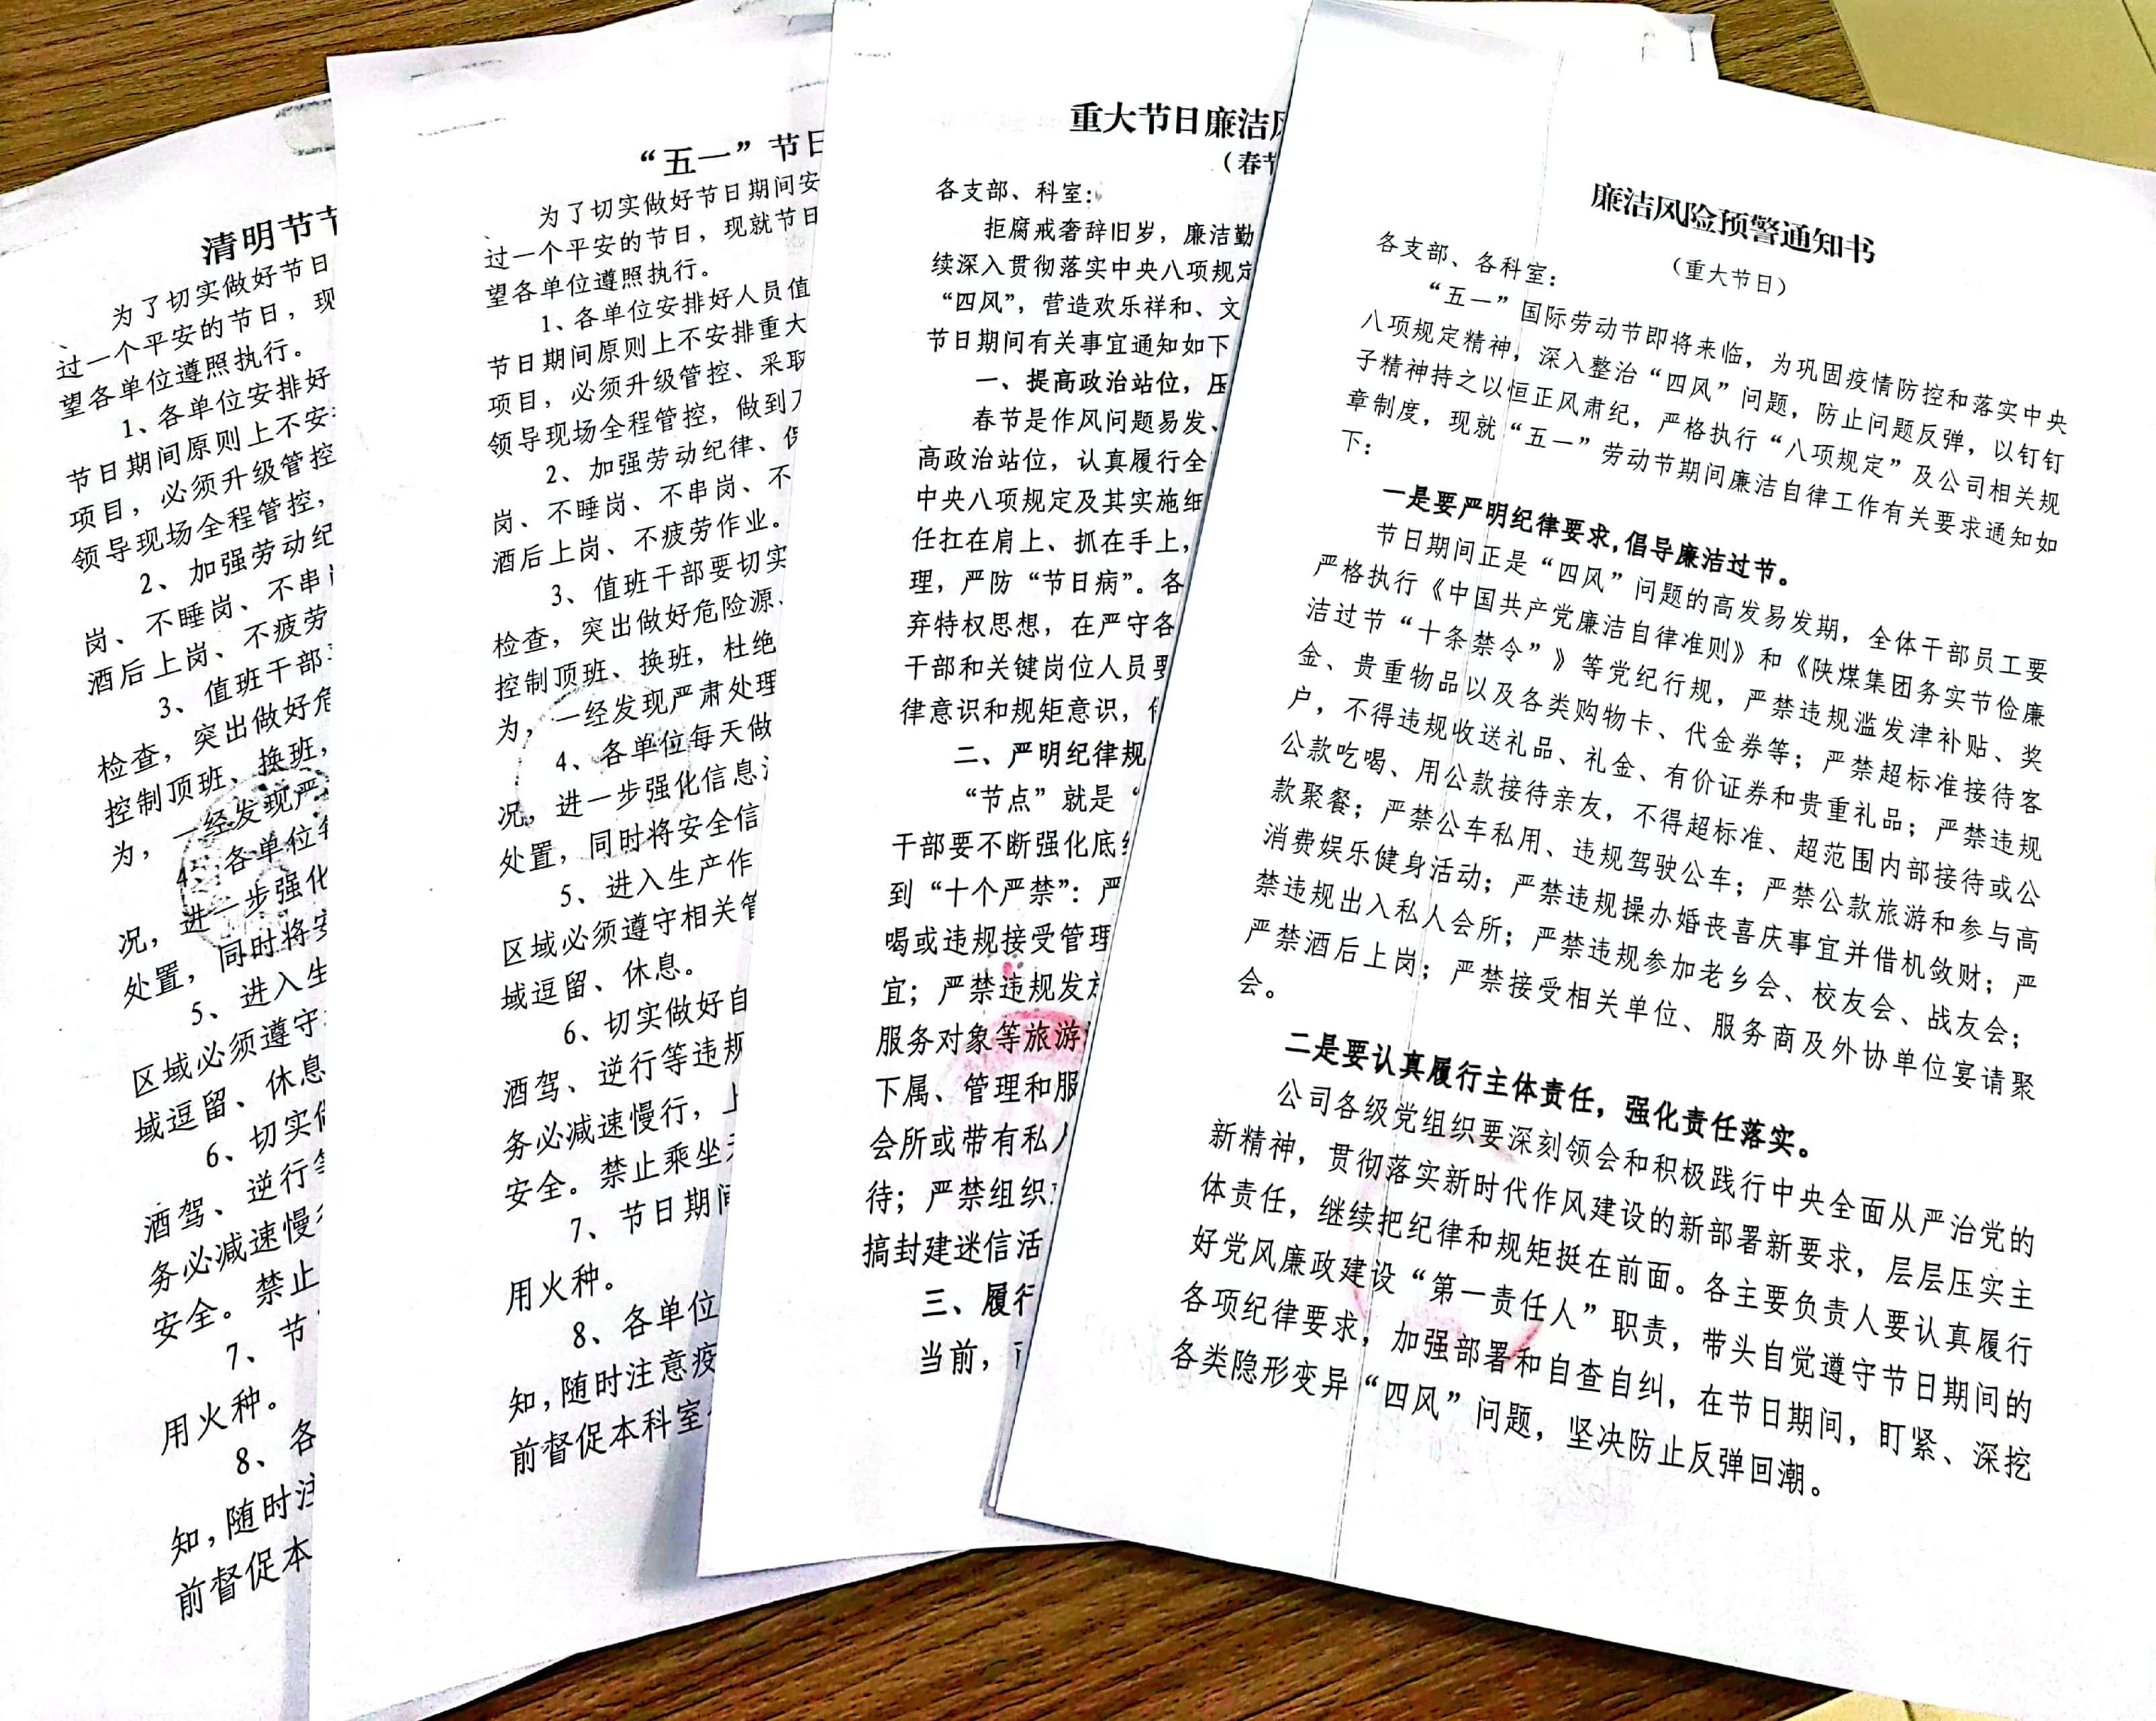 清明节
为了切实做好节日
过一个平安的节日，现
望各单位遵照执行。
1、各单位安排好
节日期间原则上不安
项目，必须升级管控
领导现场全程管控，
2、加强劳动纪
岗、不睡岗、不串
酒后上岗、不疲劳
3、值班干部
检查，突出做好危
控制顶班、换班，
为，一经发现严
4、各单位每
况，进一步强化
处置，同时将安
5、进入生
区域必须遵守
域逗留、休息
6、切实做
酒驾、逆行等
务必减速慢行
安全。禁止
7、节
用火种。
8、各
知，随时注
前督促本
“五一”节日
为了切实做好节日期间安
过一个平安的节日，现就节日
望各单位遵照执行。
1、各单位安排好人员值
节日期间原则上不安排重大
项目，必须升级管控、采取
领导现场全程管控，做到
2、加强劳动纪律、保
岗、不睡岗、不串岗、不
酒后上岗、不疲劳作业。
3、值班干部要切实
检查，突出做好危险源、
控制顶班、换班，杜绝
为，一经发现严肃处理
4、各单位每天做
况，进一步强化信息
处置，同时将安全信
5、进入生产作
区域必须遵守相关管
域逗留、休息。
6、切实做好自
酒驾、逆行等违规
务必减速慢行，上
安全。禁止乘坐
7、节日期间
用火种。
8、各单位
知，随时注意疫
前督促本科室
重大节日廉洁风
（春节
各支部、科室：
拒腐戒奢辞旧岁，廉洁勤
续深入贯彻落实中央八项规定
“四风”，营造欢乐祥和、文
节日期间有关事宜通知如下
一、提高政治站位，压
春节是作风问题易发、
高政治站位，认真履行全
中央八项规定及其实施细
任扛在肩上、抓在手上，
理，严防“节日病”。各
弃特权思想，在严守各
干部和关键岗位人员要
律意识和规矩意识，
二、严明纪律规
“节点”就是“
干部要不断强化底线
到“十个严禁”：严
喝或违规接受管理
宜；严禁违规发放
服务对象等旅游
下属、管理和服
会所或带有私人
待；严禁组织
搞封建迷信活
三、履行
当前，
廉洁风险预警通知书
（重大节日）
各支部、各科室：
“五一”国际劳动节即将来临，为巩固疫情防控和落实中央
八项规定精神，深入整治“四风”问题，防止问题反弹，以钉钉
子精神持之以恒正风肃纪，严格执行“八项规定”及公司相关规
章制度，现就“五一”劳动节期间廉洁自律工作有关要求通知如
下：
一是要严明纪律要求，倡导廉洁过节。
节日期间正是“四风”问题的高发易发期，全体干部员工要
严格执行《中国共产党廉洁自律准则》和《陕煤集团务实节俭廉
洁过节“十条禁令”》等党纪行规，严禁违规滥发津补贴、奖
金、贵重物品以及各类购物卡、代金券等；严禁超标准接待客
户，不得违规收送礼品、礼金、有价证券和贵重礼品；严禁违规
公款吃喝、用公款接待亲友，不得超标准、超范围内部接待或公
款聚餐；严禁公车私用、违规驾驶公车；严禁公款旅游和参与高
消费娱乐健身活动；严禁违规操办婚丧喜庆事宜并借机敛财；严
禁违规出入私人会所；严禁违规参加老乡会、校友会、战友会；
严禁酒后上岗；严禁接受相关单位、服务商及外协单位宴请聚
会。
二是要认真履行主体责任，强化责任落实。
公司各级党组织要深刻领会和积极践行中央全面从严治党的
新精神，贯彻落实新时代作风建设的新部署新要求，层层压实主
体责任，继续把纪律和规矩挺在前面。各主要负责人要认真履行
好党风廉政建设“第一责任人”职责，带头自觉遵守节日期间的
各项纪律要求，加强部署和自查自纠，在节日期间，盯紧、深挖
各类隐形变异“四风”问题，坚决防止反弹回潮。